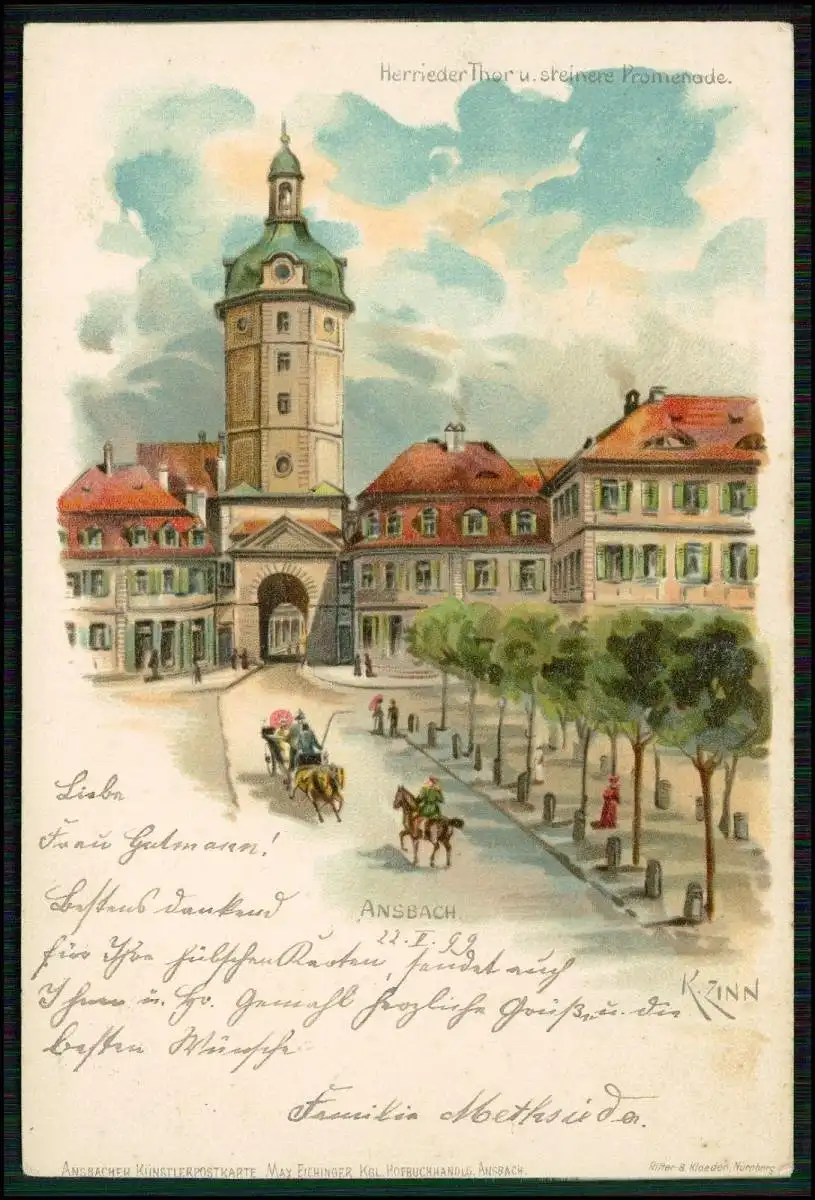 Herrieder Thor u. steinere Promenade.
Liebe
Frau Gutmann!
Bestens dankend
ANSBACH.
22. V. 99
für Ihre hübschen Karten, sendet auch
Ihnen u. Hr. Gemahl herzliche Grüße u. die
besten Wünsche
Familie
K. ZINN
ANSBACHER KÜNSTLERPOSTKARTE MAX EICHINGER KGL. HOFBUCHHANDLG. ANSBACH.
Ritter & Kloeden, Nürnberg